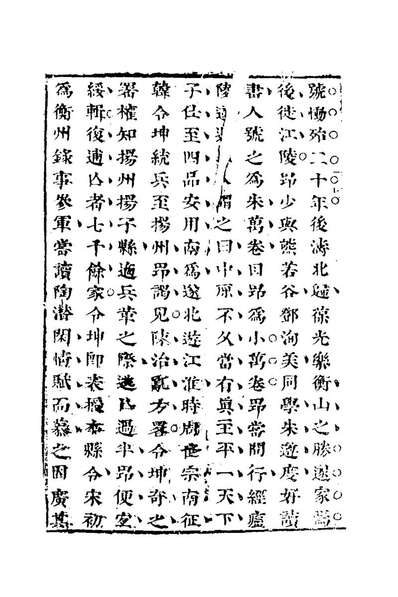 號慟殆二十年後濤北歸葆光樂衡山之勝遂家焉
後徙江陵昂少與熊若谷鄧洵美同學朱遵度好讀
書人號之爲朱萬卷目昂爲小萬卷昂嘗間行經廬
陵道人謂之曰中原不久當有眞主平一天下
子仕至四品安用南爲遂北遊江淮時周世宗南征
韓令坤統兵至揚州昂謁見陳治亂方畧令坤奇之
署權知揚州揚子縣適兵革之際逃亡過半昂便宜
綏輯復逋亡者七千餘家令坤卽表授本縣令宋初
爲衡州錄事參軍嘗讀陶潛閑情賦而慕之因廣其